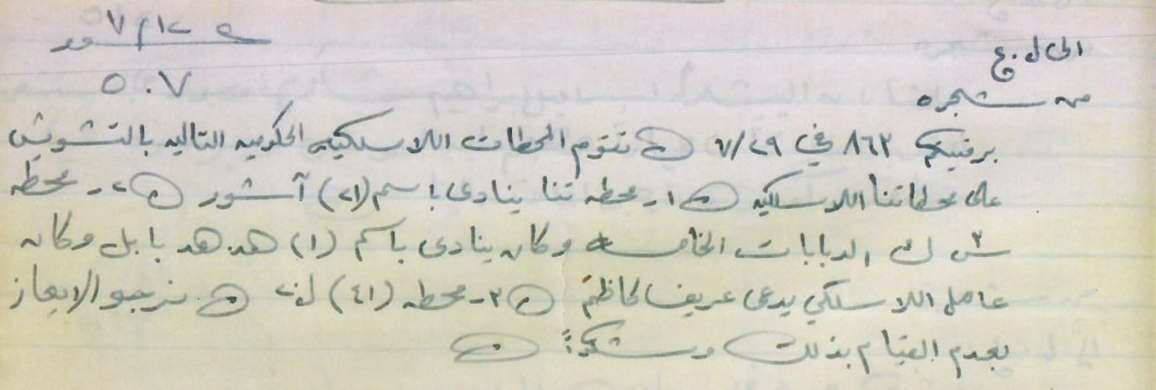 الى ل. ع
من شجره
٥٠٧
برقيتكم ٨٦٣ في ٧/٢٩ تقوم المحطات اللاسلكيه الحكوميه التاليه بالتشويش
على محطاتنا اللاسلكيه ١- محطه تنا ينادى باسم (٢١) آشور ٢- محطه
ش ك الدبابات الخامسه وكان ينادى باسم (١) هدهد بابل وكان
عامل اللاسلكي يدعى عريف كاظم ٣- محطه (٤١) ل٢ نرجو الايعاز
بعدم القيام بذلك وشكراً